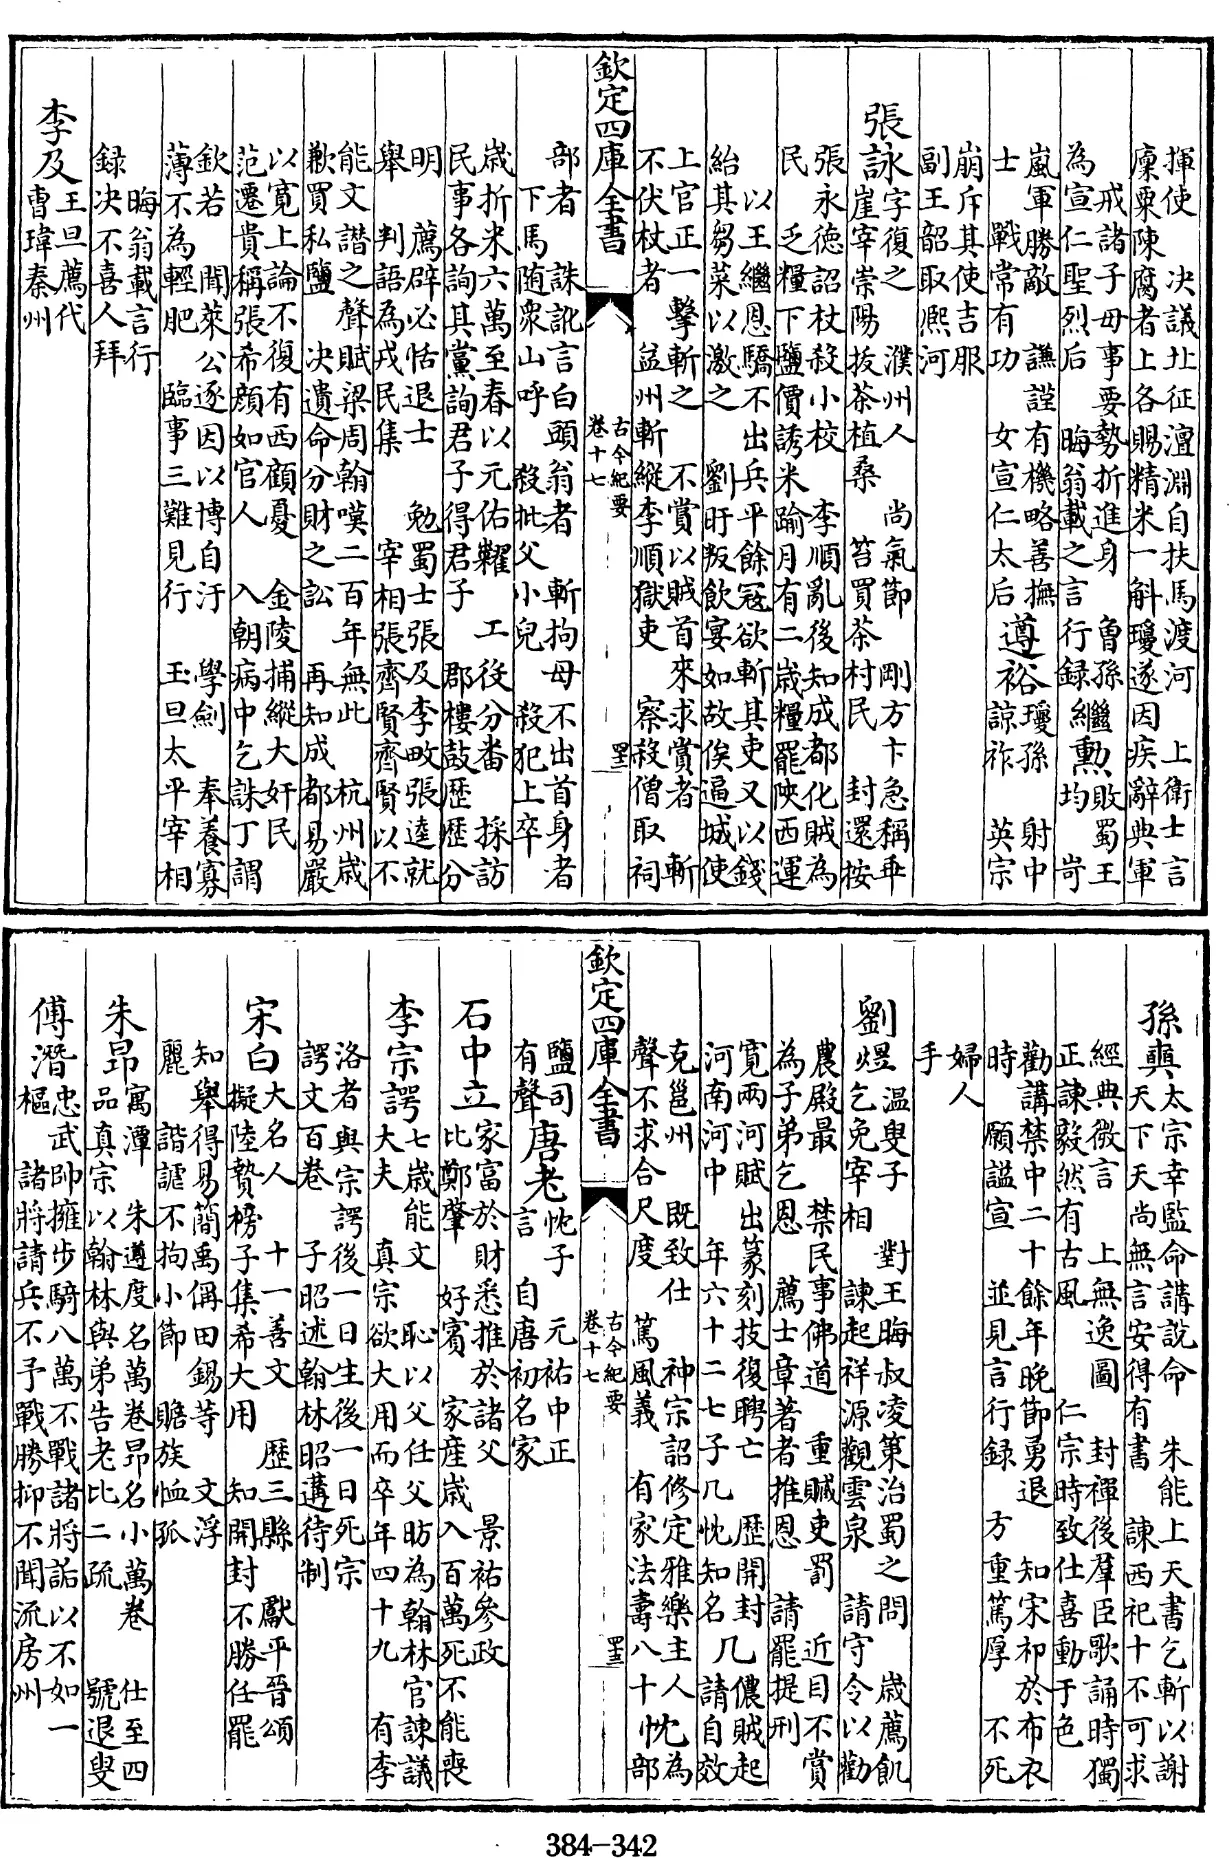 揮使　决議北征澶淵自扶馬渡河　上衛士言
廩粟陳腐者上各賜精米一斛瓊遂因疾辭典軍
戒諸子毋事要勢折進身　魯孫繼勲敗蜀王
為宣仁聖烈后　晦翁載之言行録繼勲均　哿
嵐軍勝敵　謙謹有機略善撫
士　戰常有功　女宣仁太后
遵裕瓊孫　射中
諒祚　英宗
崩斥其使吉服
副王韶取熈河
張詠字復之　濮州人　尚氣節　剛方卞急稱乖
崖宰崇陽抜茶植桑　笞買茶村民　封還按
張永徳詔杖殺小校　李順亂後知成都化賊為
民　乏糧下鹽價誘米踰月有二歳糧罷陜西運
以王繼恩驕不出兵平餘冦欲斬其吏又以錢
給其芻菜以激之　劉旴叛飲宴如故俟逼城使
上官正一擊斬之　不賞以賊首來求賞者　斬
不伏杖者　益州斬縱李順獄吏　察殺僧取祠
欽定四庫全書
古今紀要
卷十七
部者　誅訛言白頭翁者　斬拘母不出首身者
下馬随衆山呼　殺批父小兒　殺犯上卒
歳折米六萬至春以元佑糶　工役分畨　採訪
民事各詢其黨詢君子得君子　郡樓鼓歴歴分
明　薦辟必恬退士　勉蜀士張及李畋張逵就
舉　判語為戍民集　宰相張齊賢齊賢以不
能文譛之　聲賦梁周翰嘆二百年無此　杭州歳
歉買私鹽　决遺命分財之訟　再知成都易嚴
以寛上論不復有西顧憂　金陵捕縱大奸民
范遷貴稱張希顔如官人　入朝病中乞誅丁謂
欽若　聞萊公逐因以博自汙　學劍　奉養寡
薄不為輕肥　臨事三難見行　王旦太平宰相
晦翁載言行
録决不喜人拜
李及王旦薦代
曹瑋秦州
孫奭太宗幸監命講説命　朱能上天書乞斬以謝
天下天尚無言安得有書　諫西祀十不可求
經典微言　上無逸圖　封禪後羣臣歌誦時獨
正諫毅然有古風　仁宗時致仕喜動于色
勸講禁中二十餘年晩節勇退　知宋祁於布衣
時　願謚宣　並見言行録　方重篤厚　不死
婦人
手
劉煜温叟子　對王晦叔凌策治蜀之問　歳薦飢
乞免宰相　諫起祥源觀雲泉　請守令以勸
農殿最　禁民事佛道　重贓吏罰　近目不賞
為子弟乞恩　薦士章著者推恩　請罷提刑
寛兩河賦出篆刻技復聘亡　歴開封　几儂賊起
河南河中　年六十二七子几忱知名　請自效
克邕州　既致仕　神宗詔修定雅樂主人忱為
聲不求合尺度　篤風義　有家法壽八十忱部
欽定四庫全書
古今紀要
卷十七
鹽司
有聲
唐老忱子　元祐中正
言　自唐初名家
石中立家富於財悉推於諸父　景祐參政
比鄭肇　好賓　家産歳入百萬死不能喪
李宗諤七歳能文　恥以父任父昉為翰林官諫議
大夫　真宗欲大用而卒年四十九　有李
洛者與宗諤後一日生後一日死宗
諤文百巻　子昭述翰林昭遘待制
宋白大名人　十一善文　歴三縣　獻平晉頌
擬陸贄榜子集希大用　知開封不勝任罷
知舉得易簡禹偁田錫等　文浮
麗　諧謔不拘小節　贍族恤孤
朱昻寓潭　朱遵度名萬卷昻名小萬卷　仕至四
品真宗以翰林與弟告老比二疏　號退叟
傅潛忠武帥擁步騎八萬不戰諸將詬以不如一
樞　諸將請兵不予戰勝抑不聞流房州
384—342